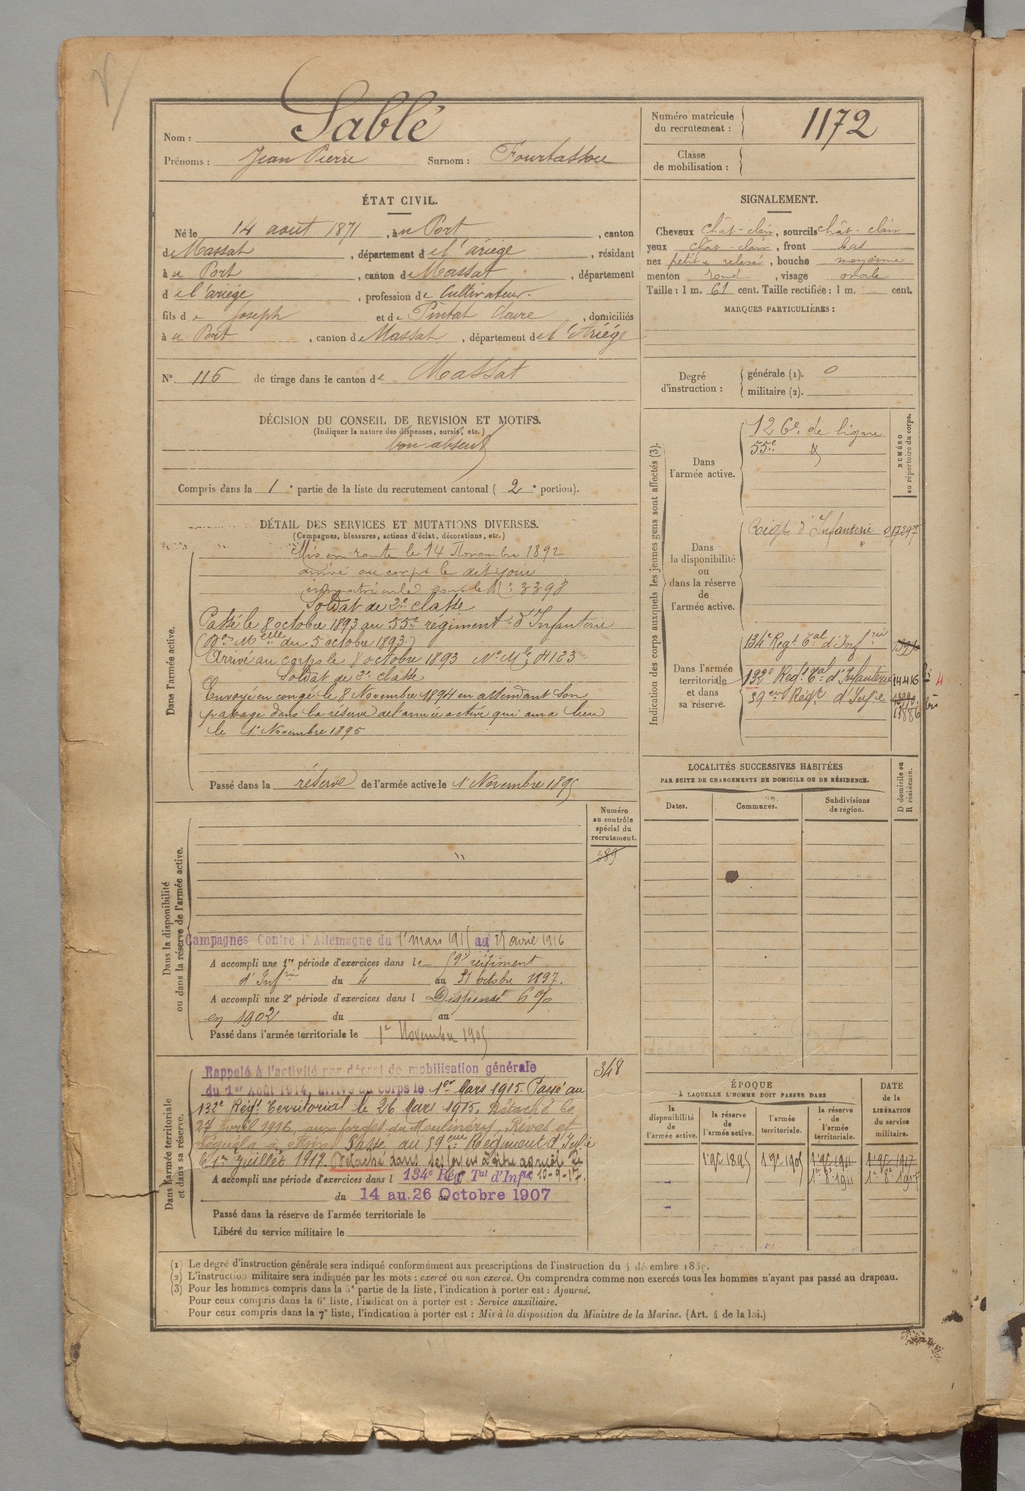 Nom : Sablé
Prénoms : Jean Pierre Surnom : Fourtassou
Numéro matricule du recrutement : 1172
Classe de mobilisation :
ÉTAT CIVIL.
Né le 14 août 1871, à Port, canton
de Massat, département de l'ariège, résidant
à Port, canton de Massat, département
de l'ariège, profession de Cultivateur.
fils de Joseph et de Pintat Claire, domiciliés
à Port, canton de Massat, département de l'Ariége
N° 116 de tirage dans le canton de Massat
SIGNALEMENT.
Cheveux chât-clair, sourcils chât-clair
yeux chât-clair, front bas
nez petit & relevé, bouche moyenne
menton rond, visage ovale
Taille : 1 m. 61 cent. Taille rectifiée : 1 m. cent.
MARQUES PARTICULIÈRES :
Degré d'instruction : générale (1). 0
militaire (2).
DÉCISION DU CONSEIL DE REVISION ET MOTIFS.
(Indiquer la nature des dispenses, sursis, etc.)
bon absent
Compris dans la 1e partie de la liste du recrutement cantonal (2e portion).
DÉTAIL DES SERVICES ET MUTATIONS DIVERSES.
(Campagnes, blessures, actions d'éclat, décorations, etc.)
Dans l'armée active.
Mis en route le 14 Novembre 1892
arrivé au corps le dit jour
immatriculé sous le N° 3398
Soldat de 2e classe
Passé le 8 octobre 1893 au 55e régiment d'Infanterie
(Don Mlle du 5 octobre 1893)
Arrivé au corps le 8 octobre 1893 No Mle 4163
Soldat de 2e classe
Envoyé en congé le 8 Novembre 1894 en attendant son
passage dans la réserve de l'armée active qui aura lieu
le 1er Novembre 1895
Passé dans la réserve de l'armée active le 1er Novembre 1895
Indication des corps auxquels les jeunes gens sont affectés (3).
NUMÉRO au répertoire du corps.
Dans l'armée active.
126e de ligne
55e d°
Dans la disponibilité ou dans la réserve de l'armée active.
Régt d'Infanterie
Dans l'armée territoriale et dans sa réserve.
134e Régt tal d'Infrie
132e Régt tal d'Infanterie 14416
59eme Régt d'Infie
LOCALITÉS SUCCESSIVES HABITÉES
PAR SUITE DE CHANGEMENTS DE DOMICILE OU DE RÉSIDENCE.
Dates. Communes. Subdivisions de région. D domicile ou R résidence.
Dans la disponibilité ou dans la réserve de l'armée active.
Numéro au contrôle spécial du recrutement.
389
Campagnes Contre l'Allemagne du 1er mars 1915 au avril 1916
A accompli une 1re période d'exercices dans le 59e régiment
d'Infrie du 4 au 31 octobre 1897.
A accompli une 2e période d'exercices dans l Dispensé
en 1902 du au
Passé dans l'armée territoriale le 1er Novembre 1905
Dans l'armée territoriale et dans sa réserve.
348
Rappelé à l'activité par décret de mobilisation générale
du 1er Août 1914, arrivé au corps le 1er Mars 1915. Passé au
132e Régt Territorial le 26 Mars 1915. Détaché le
avril 1916, aux forges du Moulinery,
Passé au 59eme Régiment d'Infie
le 1er Juillet 1917. Détaché dans
A accompli une période d'exercices dans l 134e Régt Tal d'Infie 10-9-17.
du 14 au 26 Octobre 1907
Passé dans la réserve de l'armée territoriale le
Libéré du service militaire le
ÉPOQUE
A LAQUELLE L'HOMME DOIT PASSER DANS
la disponibilité de l'armée active.
la réserve de l'armée active.
l'armée territoriale.
la réserve de l'armée territoriale.
DATE de la LIBÉRATION du service militaire.
1 9bre 1895 1 9bre 1905 1 9bre 1911 1 9bre 1917
(1) Le degré d'instruction générale sera indiqué conformément aux prescriptions de l'instruction du
(2) L'instruction militaire sera indiquée par les mots : exercé ou non exercé. On comprendra comme non exercés tous les hommes n'ayant pas passé au drapeau.
(3) Pour les hommes compris dans la 5e partie de la liste, l'indication à porter est : Ajourné.
Pour ceux compris dans la 6e liste, l'indication à porter est : Service auxiliaire.
Pour ceux compris dans la 7e liste, l'indication à porter est : Mis à la disposition du Ministre de la Marine. (Art. 4 de la loi.)